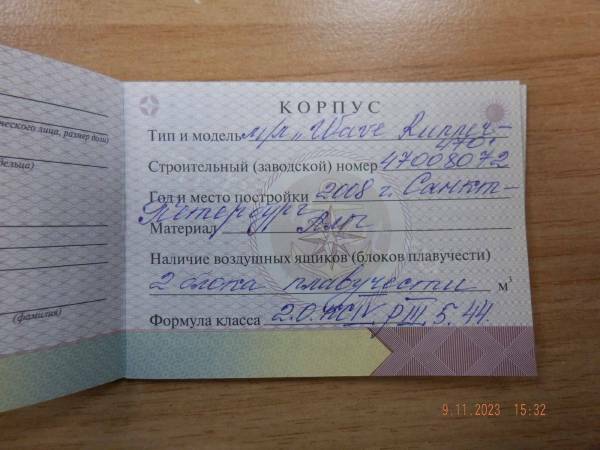 ческого лица, размер доли)
дельца)
(фамилия)
КОРПУС
Тип и модель м/л „Wave Runner-
470"
Строительный (заводской) номер 47008072
Год и место постройки 2008 г. Санкт-
Петербург
Материал
Наличие воздушных ящиков (блоков плавучести)
2 блока плавучести м³
Формула класса 2.0.
5.44.
9.11.2023 15:32